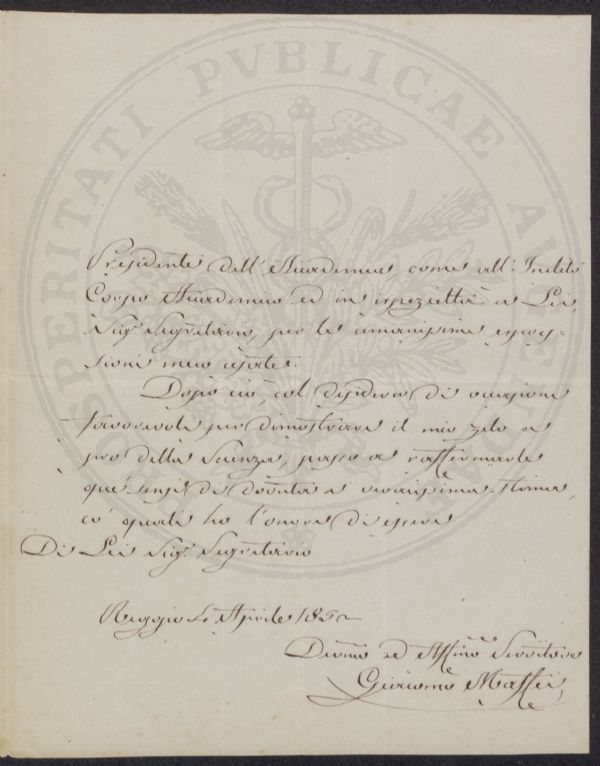 PROSPERITATI PVBLICAE AVGENDAE
Presidente dell'Accademia come all'Inclito
Corpo Accademico ed in ispezieltà a Lei,
Sigr. Segretario, per le umanissime espres-
sioni meco usate.
Dopo ciò, col desiderio di occasione
favorevole per dimostrare il mio zelo a
pro della Scienza, passo a raffermarle
que' sensi di dovuta e verissima stima,
co' quali ho l'onore di essere
Di Lei Sigr. Segretario
Reggio 4 Aprile 1852
Devmo ed Affmo Servitore
Giacomo Maffei